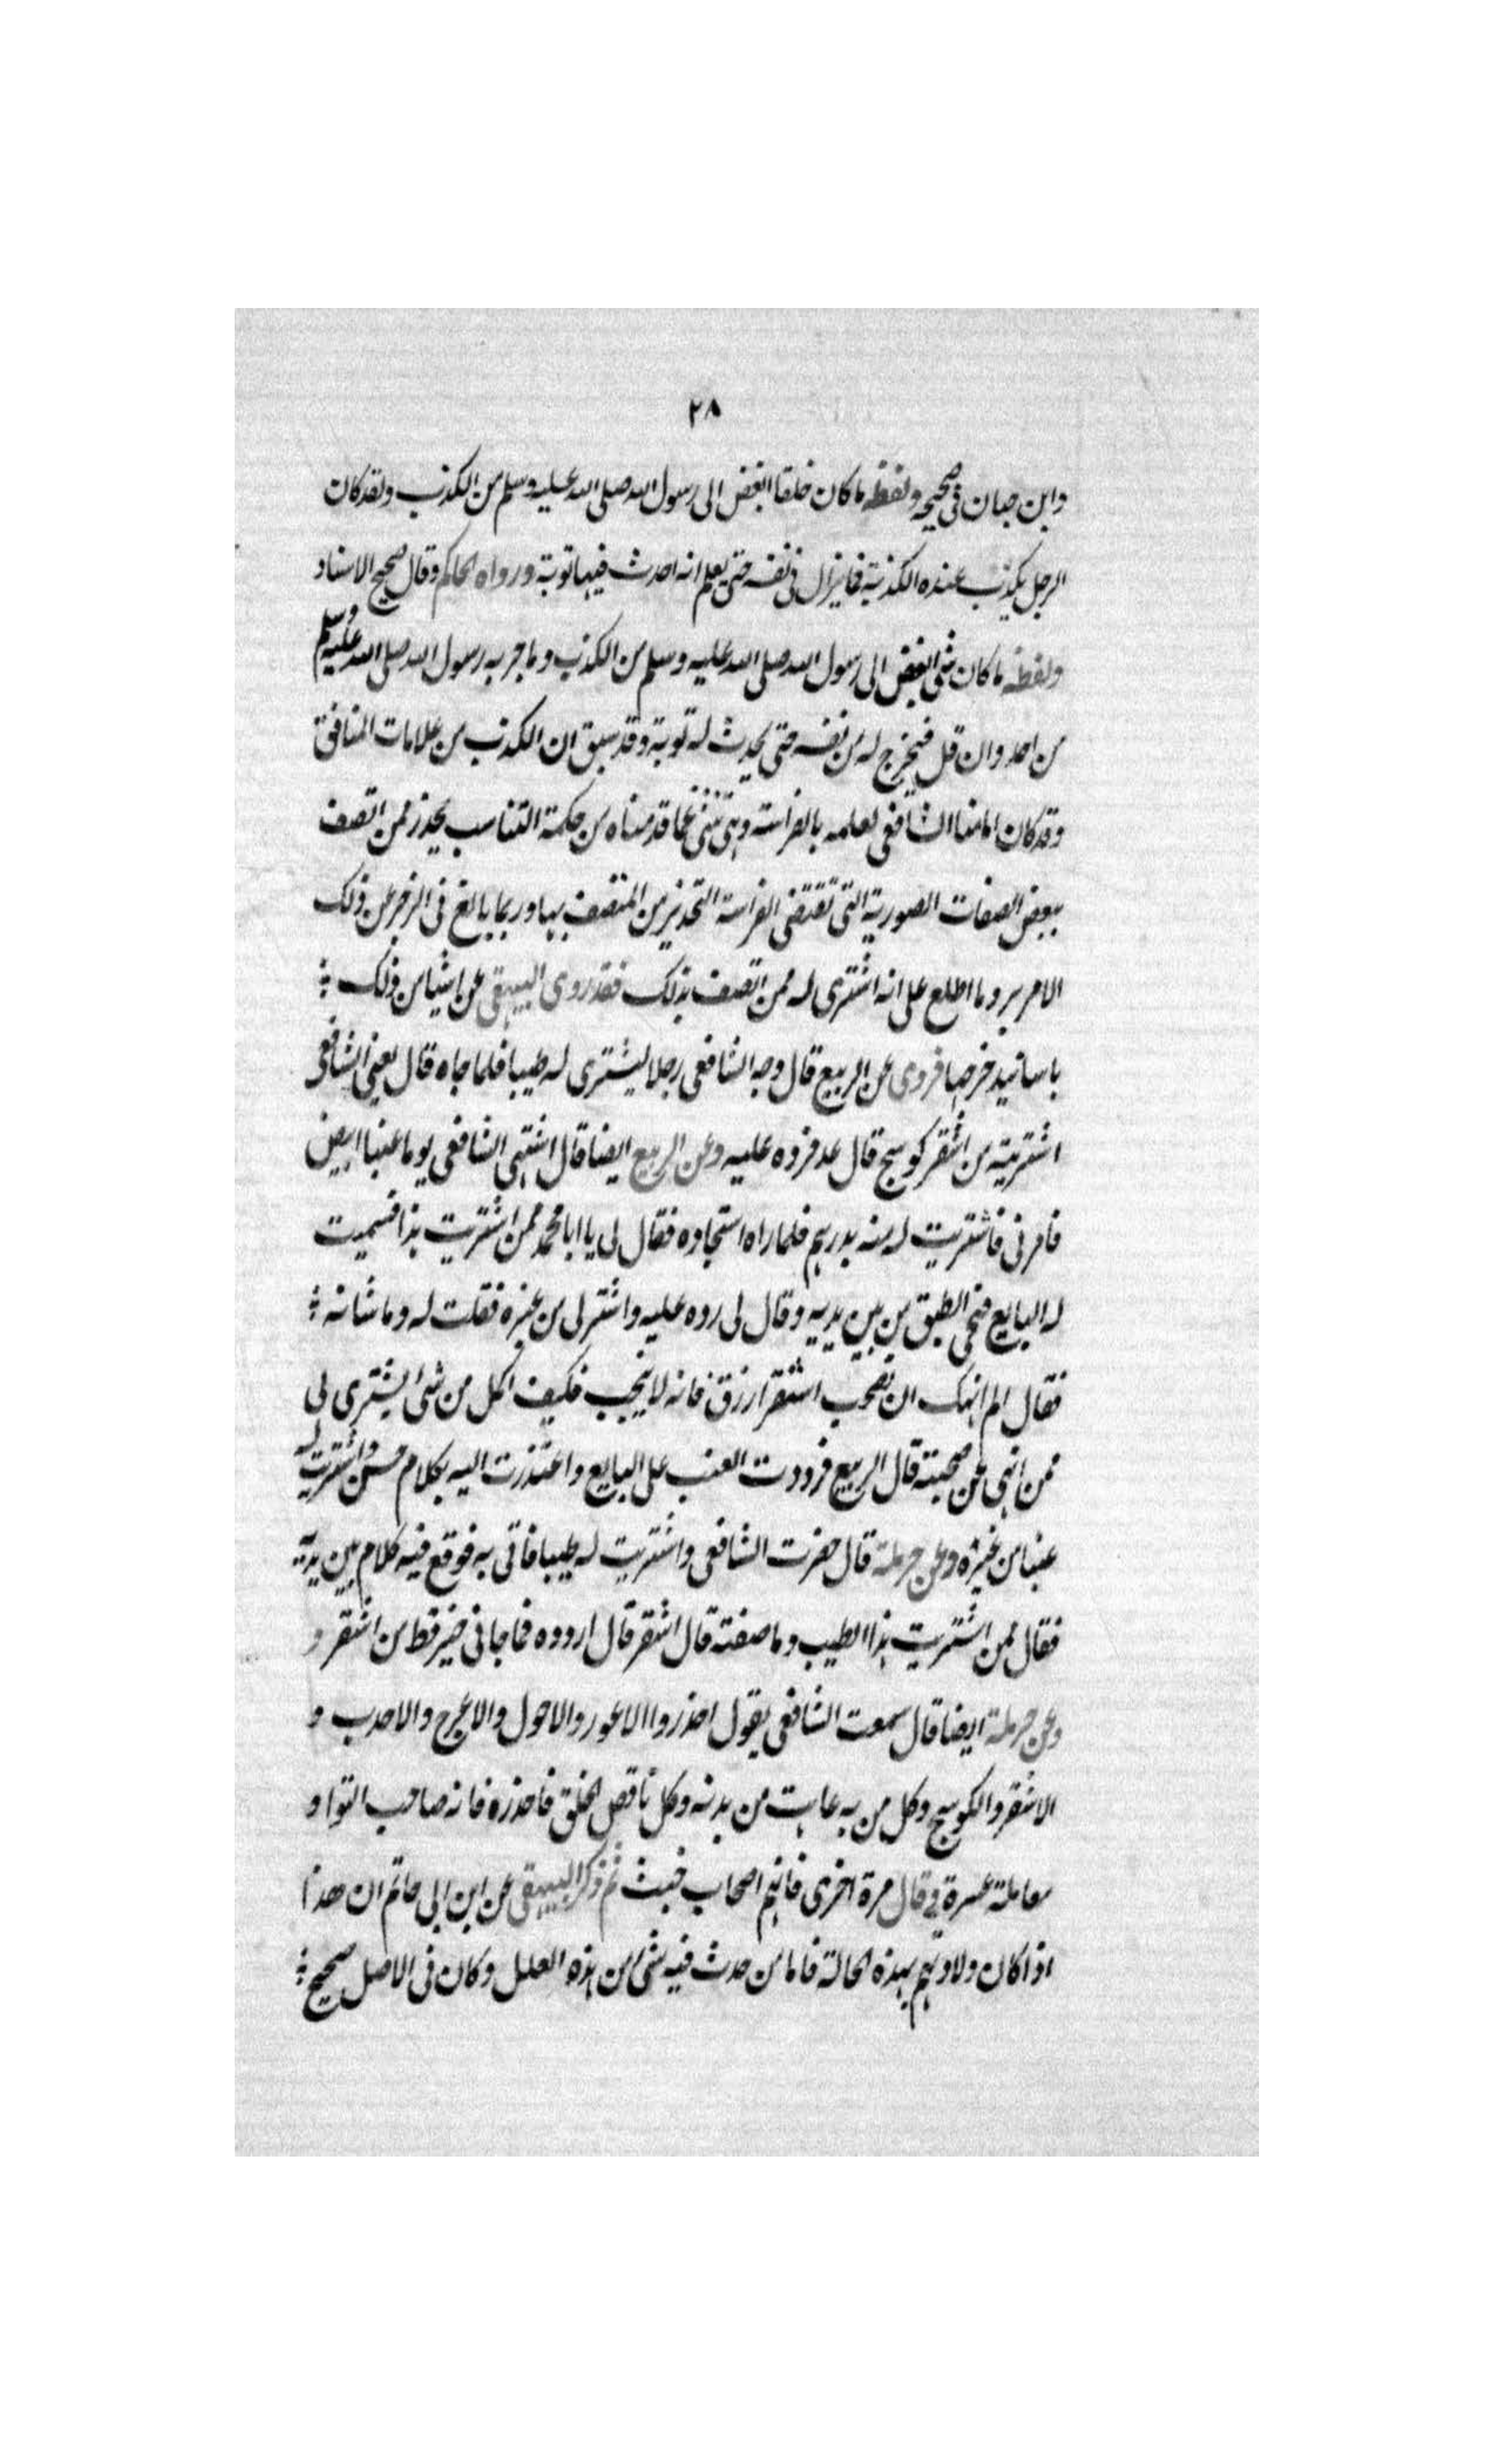 ٢٨
وابن حبان فى صحيحه ولفظه ما كان خلقا ابغض الى رسول الله صلى الله عليه وسلم من الكذب ولقد كان
الرجل يكذب عنده الكذبة فما يزال فى نفسه حتى يعلم انه احدث فيها توبة ورواه الحاكم وقال صحيح الاسناد
ولفظه ما كان شئ ابغض الى رسول الله صلى الله عليه وسلم من الكذب وما جربه رسول الله صلى الله عليه وسلم
من احد وان قل فيخرج له من نفسه حتى يحدث له توبة وقد سبق ان الكذب من علامات المنافق
وقد كان امامنا الشافعى لعلمه بالفراسة وهى تنبئ عما قدمناه من حكمة التناسب يحذر ممن اتصف
ببعض الصفات الصورية التى تقتضى الفراسة التحذير من المتصف بها وربما يبالغ فى الزجر عن ذلك
الامر برد ما اطلع على انه اشترى له ممن اتصف بذلك فقد روى البيهقى عن اشيا من ذلك
باسانيد خرجها فروى عن الربيع قال وجه الشافعى رجلا ليشترى له طيبا فلما جاه قال يعنى الشافعى
اشتريته من اشقر كوسج قال عد فرده عليه وعن الربيع ايضا قال اشتهى الشافعى يوما عنبا ابيض
فامرنى فاشتريت له منه بدرهم فلما راه استجاده فقال لى يا ابا محمد ممن اشتريت هذا فسميت
له البايع فنحى الطبق من بين يديه وقال لى رده عليه واشتر لى من غيره فقلت له وما شانه
فقال الم انهك ان تصحب اشقر ازرق فانه لا ينجب فكيف اكل من شئ يشترى لى
ممن انهى عن صحبته قال الربيع فرددت العنب على البايع واعتذرت اليه بكلام حسن واشتريت له
عنبا من غيره وعن حرملة قال حضرت الشافعى واشتريت له طيبا فاتى به فوقع فيه كلام بين يديه
فقال ممن اشتريت هذا الطيب وما صفته قال اشقر قال اردده فما جانى خير قط من اشقر و
وعن حرملة ايضا قال سمعت الشافعى يقول احذروا الاعور والاحول والاعرج والاحدب و
الاشقر والكوسج وكل من به عاهة من بدنه وكل ناقص الخلق فاحذره فانه صاحب التوا و
معاملته عسرة وقال مرة اخرى فانهم اصحاب خبث ثم ذكر البيهقى عن ابن ابى حاتم ان هذا
اذا كان ولادتهم بهذه الحالة فاما من حدث فيه شئ من هذه العلل وكان فى الاصل صحيح